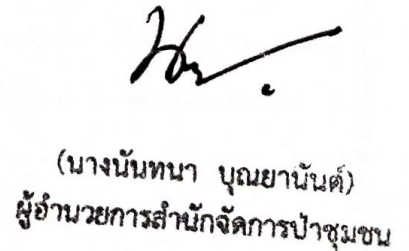 (นางนันทนา บุณยานันต์)
ผู้อำนวยการสำนักจัดการป่าชุมชน